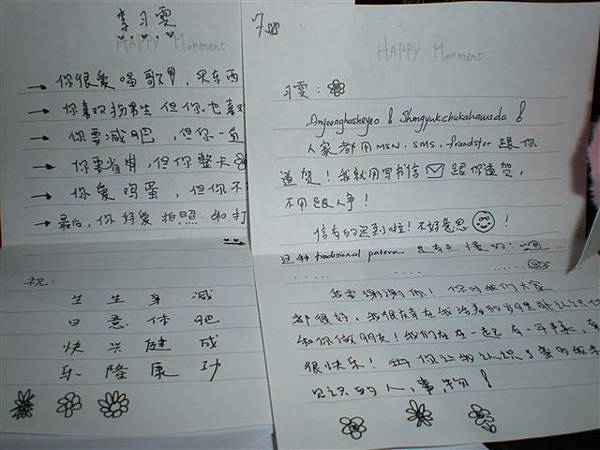 李习雯
HAPPY Morment
→ 你很爱唱歌, 买东西
→ 你喜欢 男生 但你也喜
→ 你要减吧, 但你一直
→ 你要省 , 但你整卡
→ 你爱鸡蛋, 但你不
→ 最后, 你好爱拍照 和打
祝:
生 生 身 减
日 意 体 吧
快 兴 健 成
乐 隆 康 功
HAPPY Morment
习雯:
人家都用 MSN, SMS, friendster 跟你
道贺! 我就用写书信 跟你道贺,
不用跟人争!
信有的迟到啦! 不好意思 !
这种 tradisional patern 是有 慢的!
我要谢谢你! 你对我们大家
都很好, 我很 在我 认识你
和你做朋友! 我们在在一起 有一年半,
很快乐! 你让我认识了
见识的人,事,物!